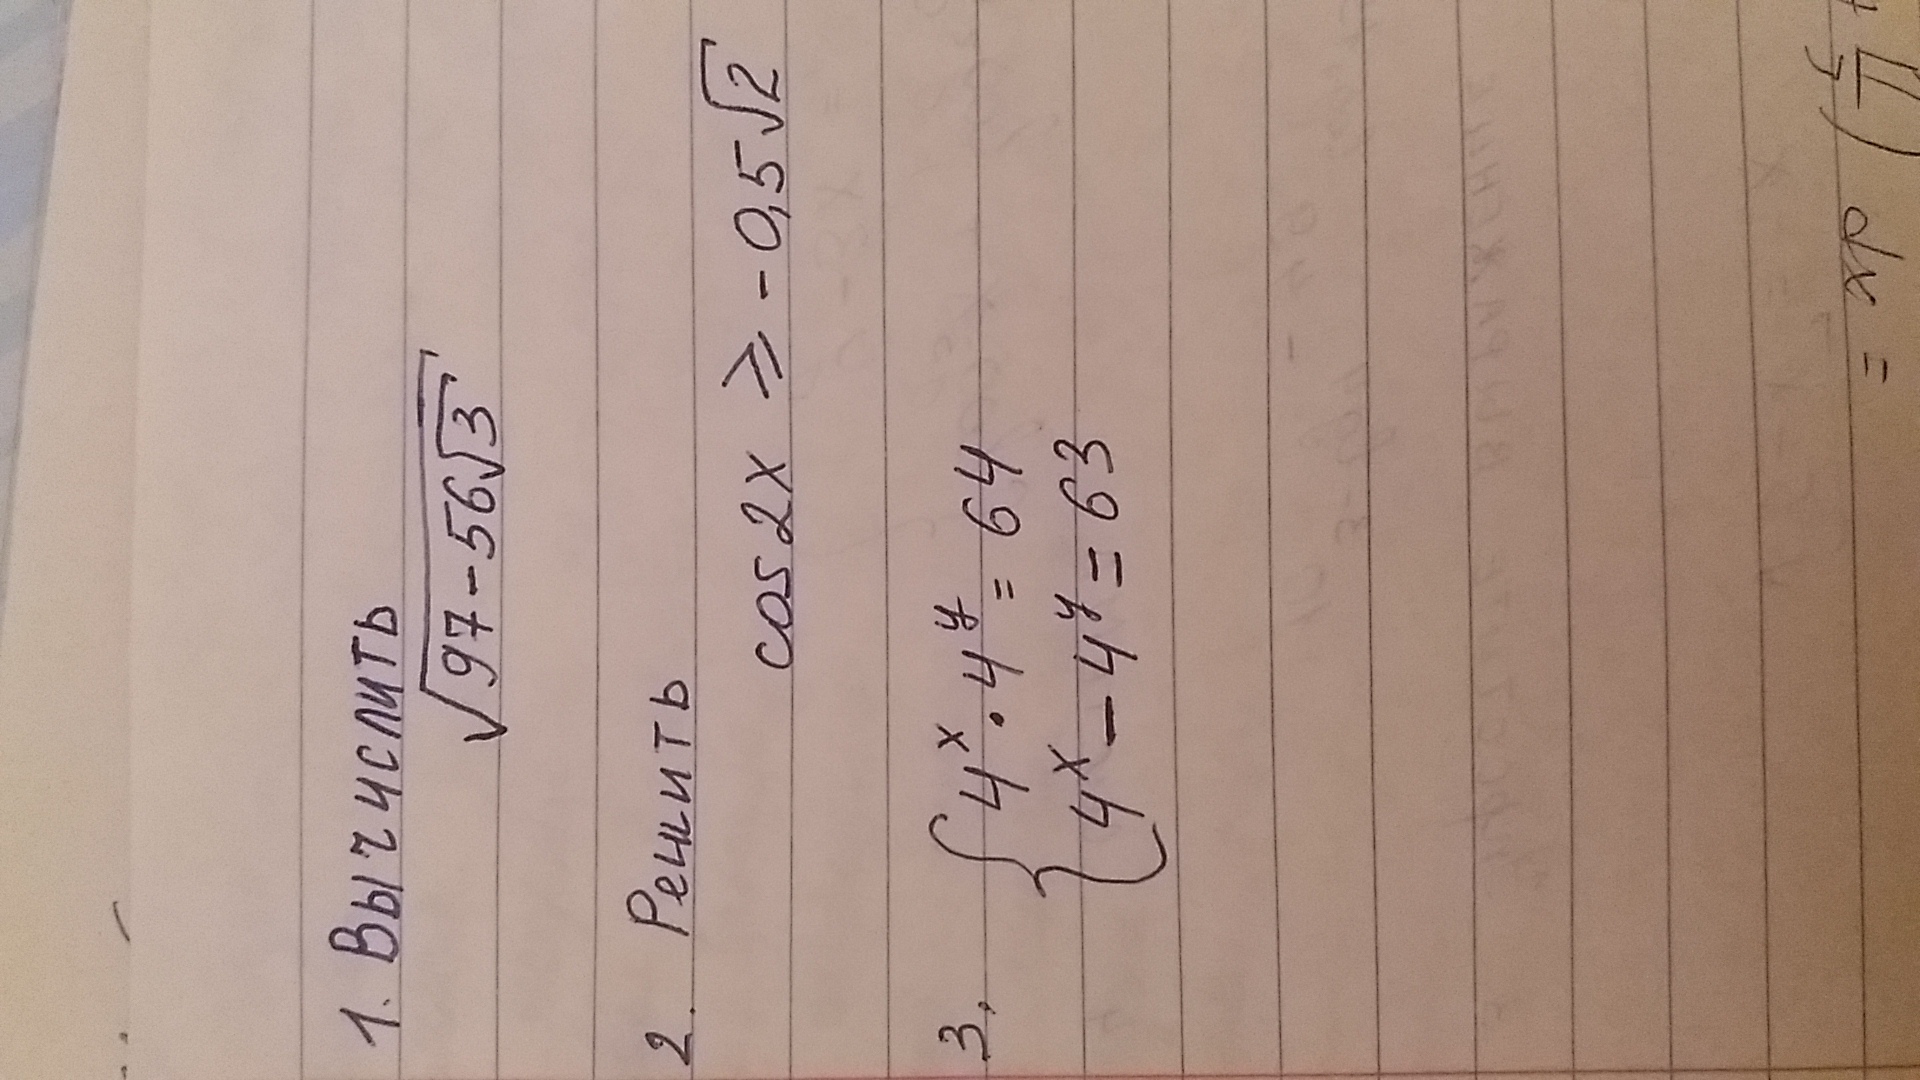 1. Вычислить
√(97-56√3)
2. Решить
cos 2x ⩾ -0,5√2
3. { 4^x · 4^y = 64
4^x - 4^y = 63
= dx